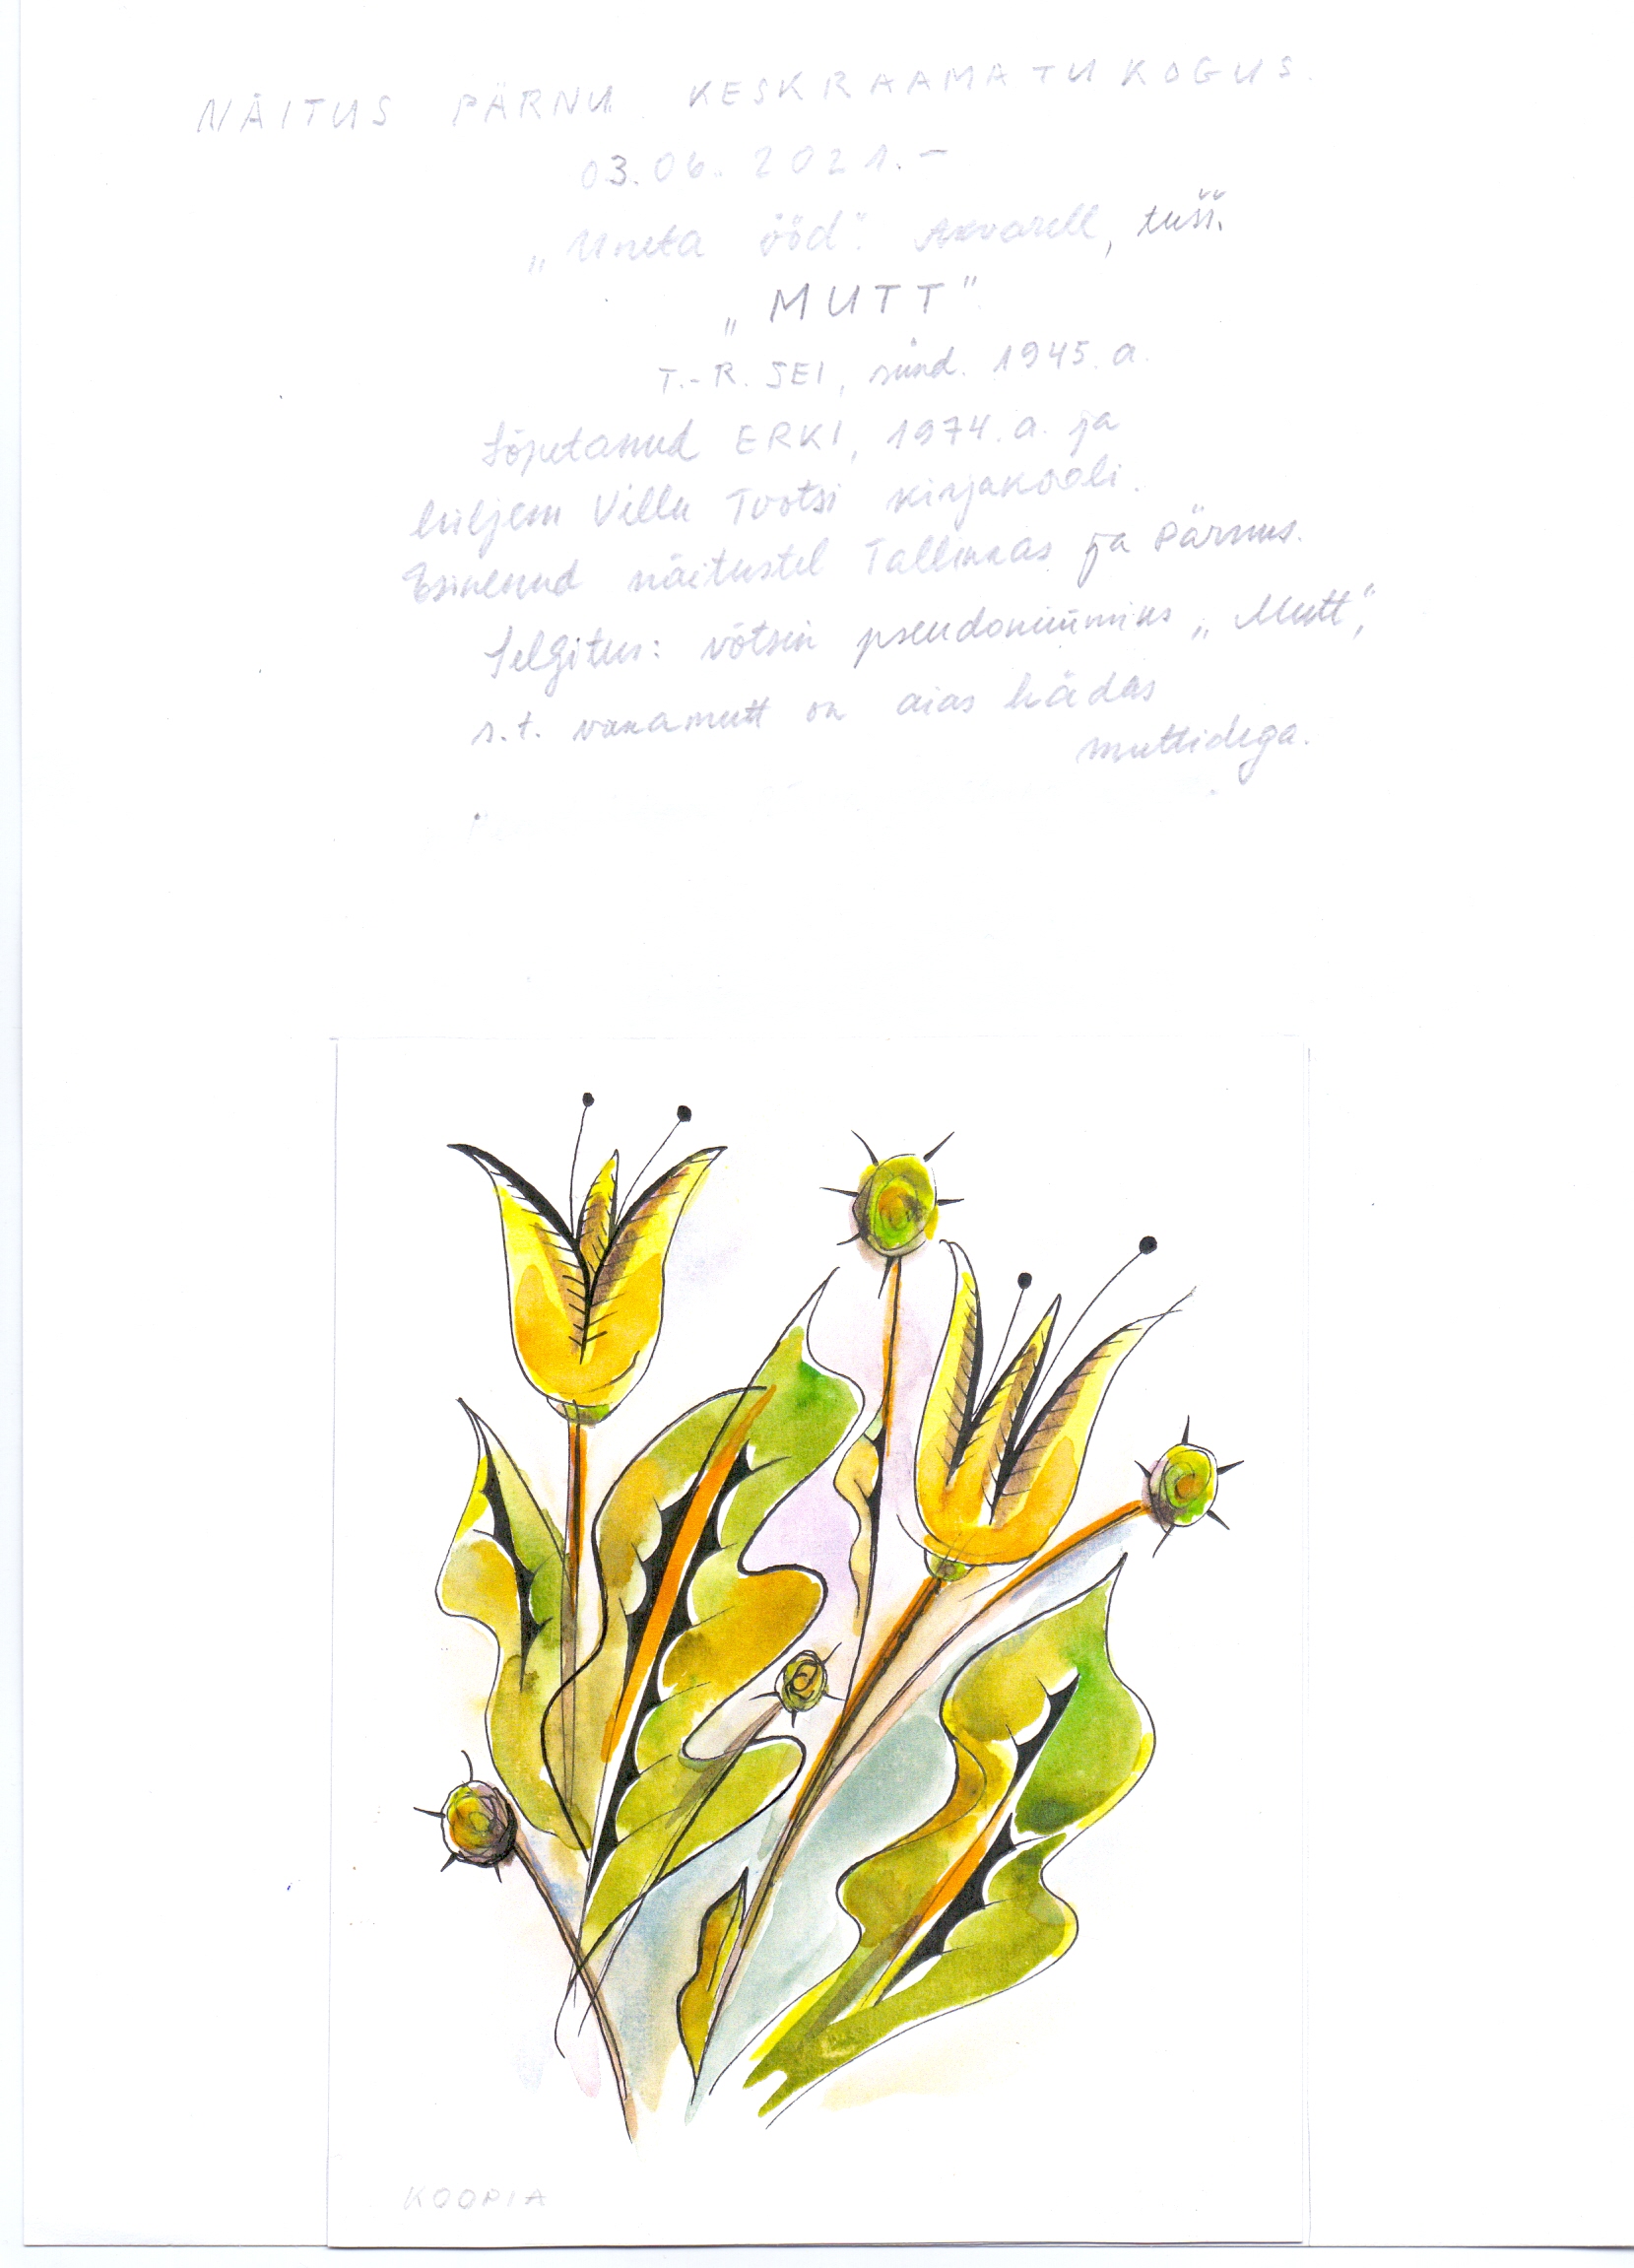 NÄITUS PÄRNU KESKRAAMATUKOGUS.
03.06.2021.–
„Uneta ööd". Akvarell, tušš.
„MUTT"
T.-R. SEI, sünd. 1945.a.
Lõpetanud ERKI, 1974.a. ja
hiljem Villu Tootsi kirjakooli.
Esinenud näitustel Tallinnas ja Pärnus.
Selgitus: võtsin pseudonüümiks „Mutt",
s.t. vanamutt on aias hädas
muttidega.
KOOPIA